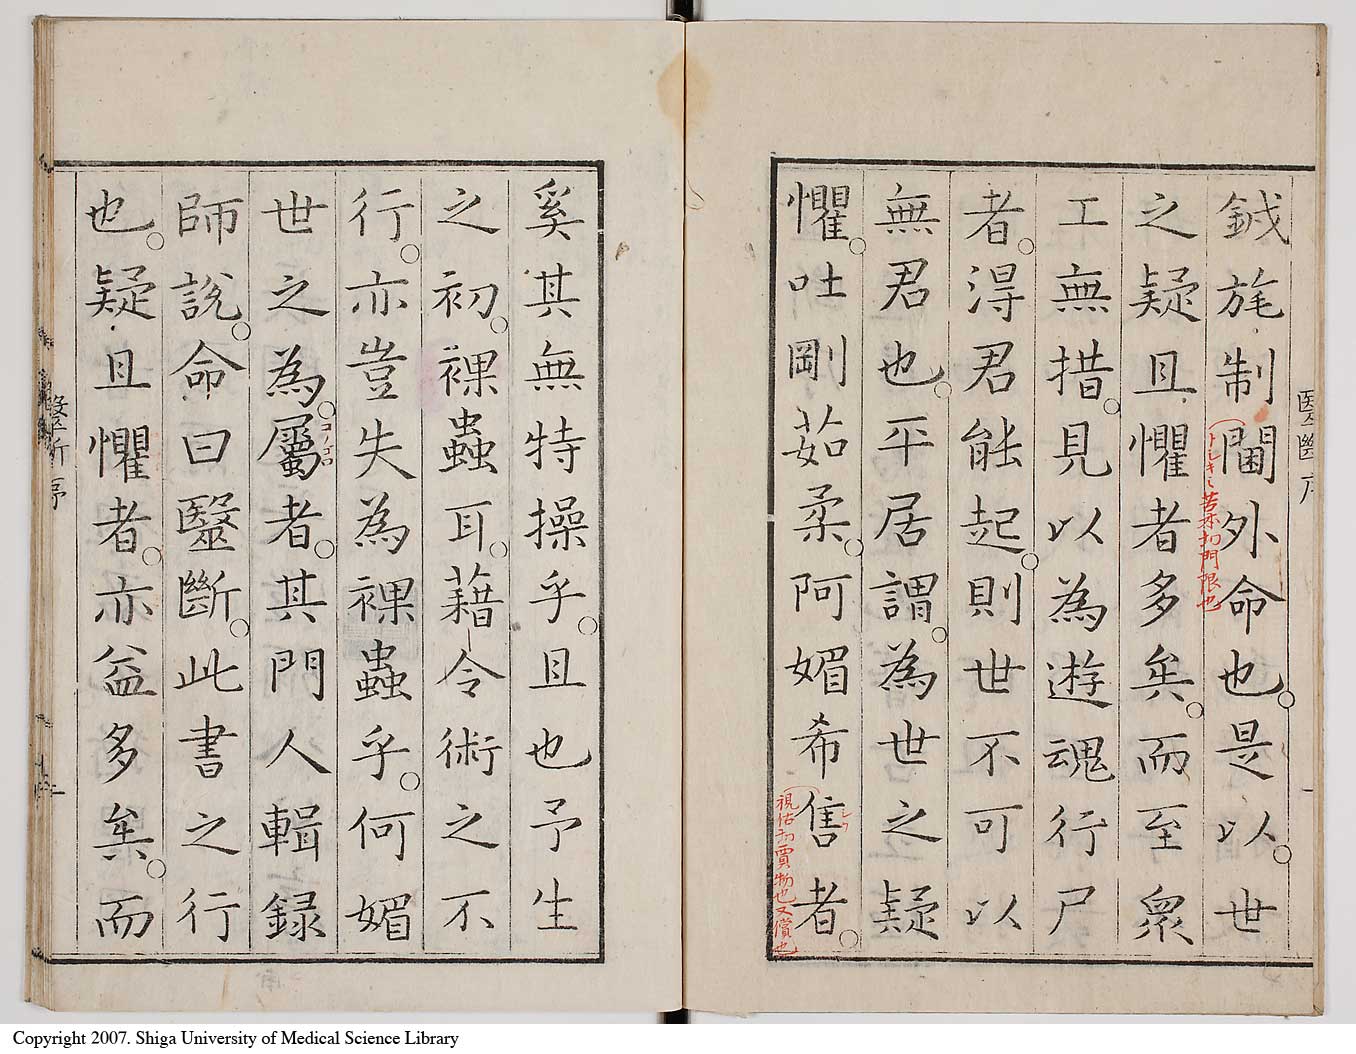 鉞旄制閫外命也。是以。世
之疑且懼者多矣。而至衆
工無措。見以為遊魂行尸
者。得君能起。則世不可以
無君也。平居謂。為世之疑
懼。吐剛茹柔。阿媚希售者。
奚其無特操乎。且也予生
之初。裸蟲耳。藉令術之不
行。亦豈失為裸蟲乎。何媚
世之為。屬者。其門人輯録
師說。命曰毉斷。此書之行
也。疑且懼者。亦益多矣。而
トシキミ苦本切門限也
シウ
視佔切賣物也又償也
コノゴロ
醫斷序
Copyright 2007. Shiga University of Medical Science Library